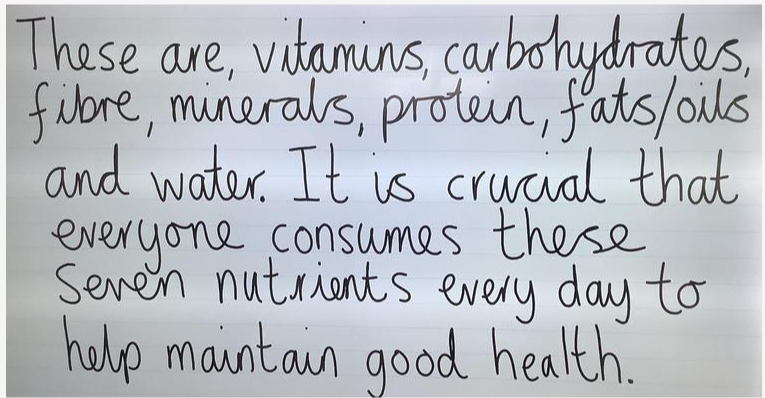 These are, vitamins, carbohydrates,
fibre, minerals, protein, fats/oils
and water. It is crucial that
everyone consumes these
Seven nutrients every day to
help maintain good health.